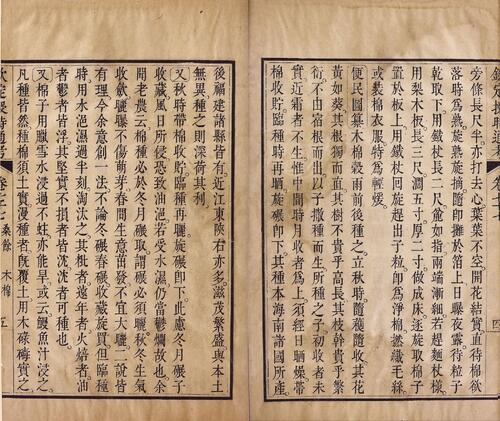 旁條長尺半亦打去心葉葉不空開花結實直待棉欲
落時為熟旋熟旋摘隨即攤於箔上日曝夜露待粒子
乾取下用鐵杖長二尺麄如指兩端漸細若趕麵杖樣
用梨木板長三尺濶五寸厚二寸做成床逐旋取棉子
置於板上用鐵杖回旋趕出子粒即為淨棉撚織毛絲
或裝棉衣服特為輕煖
便民圖纂木棉穀雨前後種之立秋時隨穫隨收其花
黃如葵其根獨而直其樹不貴乎高長其枝幹貴乎繁
衍不由宿根而出以子撒種而生所種之子初收者未
實近霜者不生惟中間時月收者為上須經日晒燥帶
棉收貯臨種時再曬旋碾即下其種本海南諸國所產
後福建諸縣皆有近江東陝右亦多滋茂繁盛與本土
無異種之則深荷其利
又秋時帶棉收貯臨種再曬旋碾即下此慮冬月碾子
收藏風日所侵恐致油浥若受水濕仍當鬱爛故也余
聞老農云棉種必於冬月碾取謂碾必須曬秋冬生氣
收歛曬曝不傷萌芽春間生意茁發不宜大曬二說皆
有理今余意創一法不論冬碾春碾收藏旋買但臨種
時用水浥濕過半刻淘汰之其秕者遠年者火焙者油
者鬱者皆浮其堅實不損者皆沈沈者可種也
又棉子用臘雪水浸過不蛀亦能旱或云鰻魚汁浸之
凡種皆然種棉須土實漫種者旣覆土用木碌碡實之
欽定授時通考 卷七十七 桑餘 木棉 五